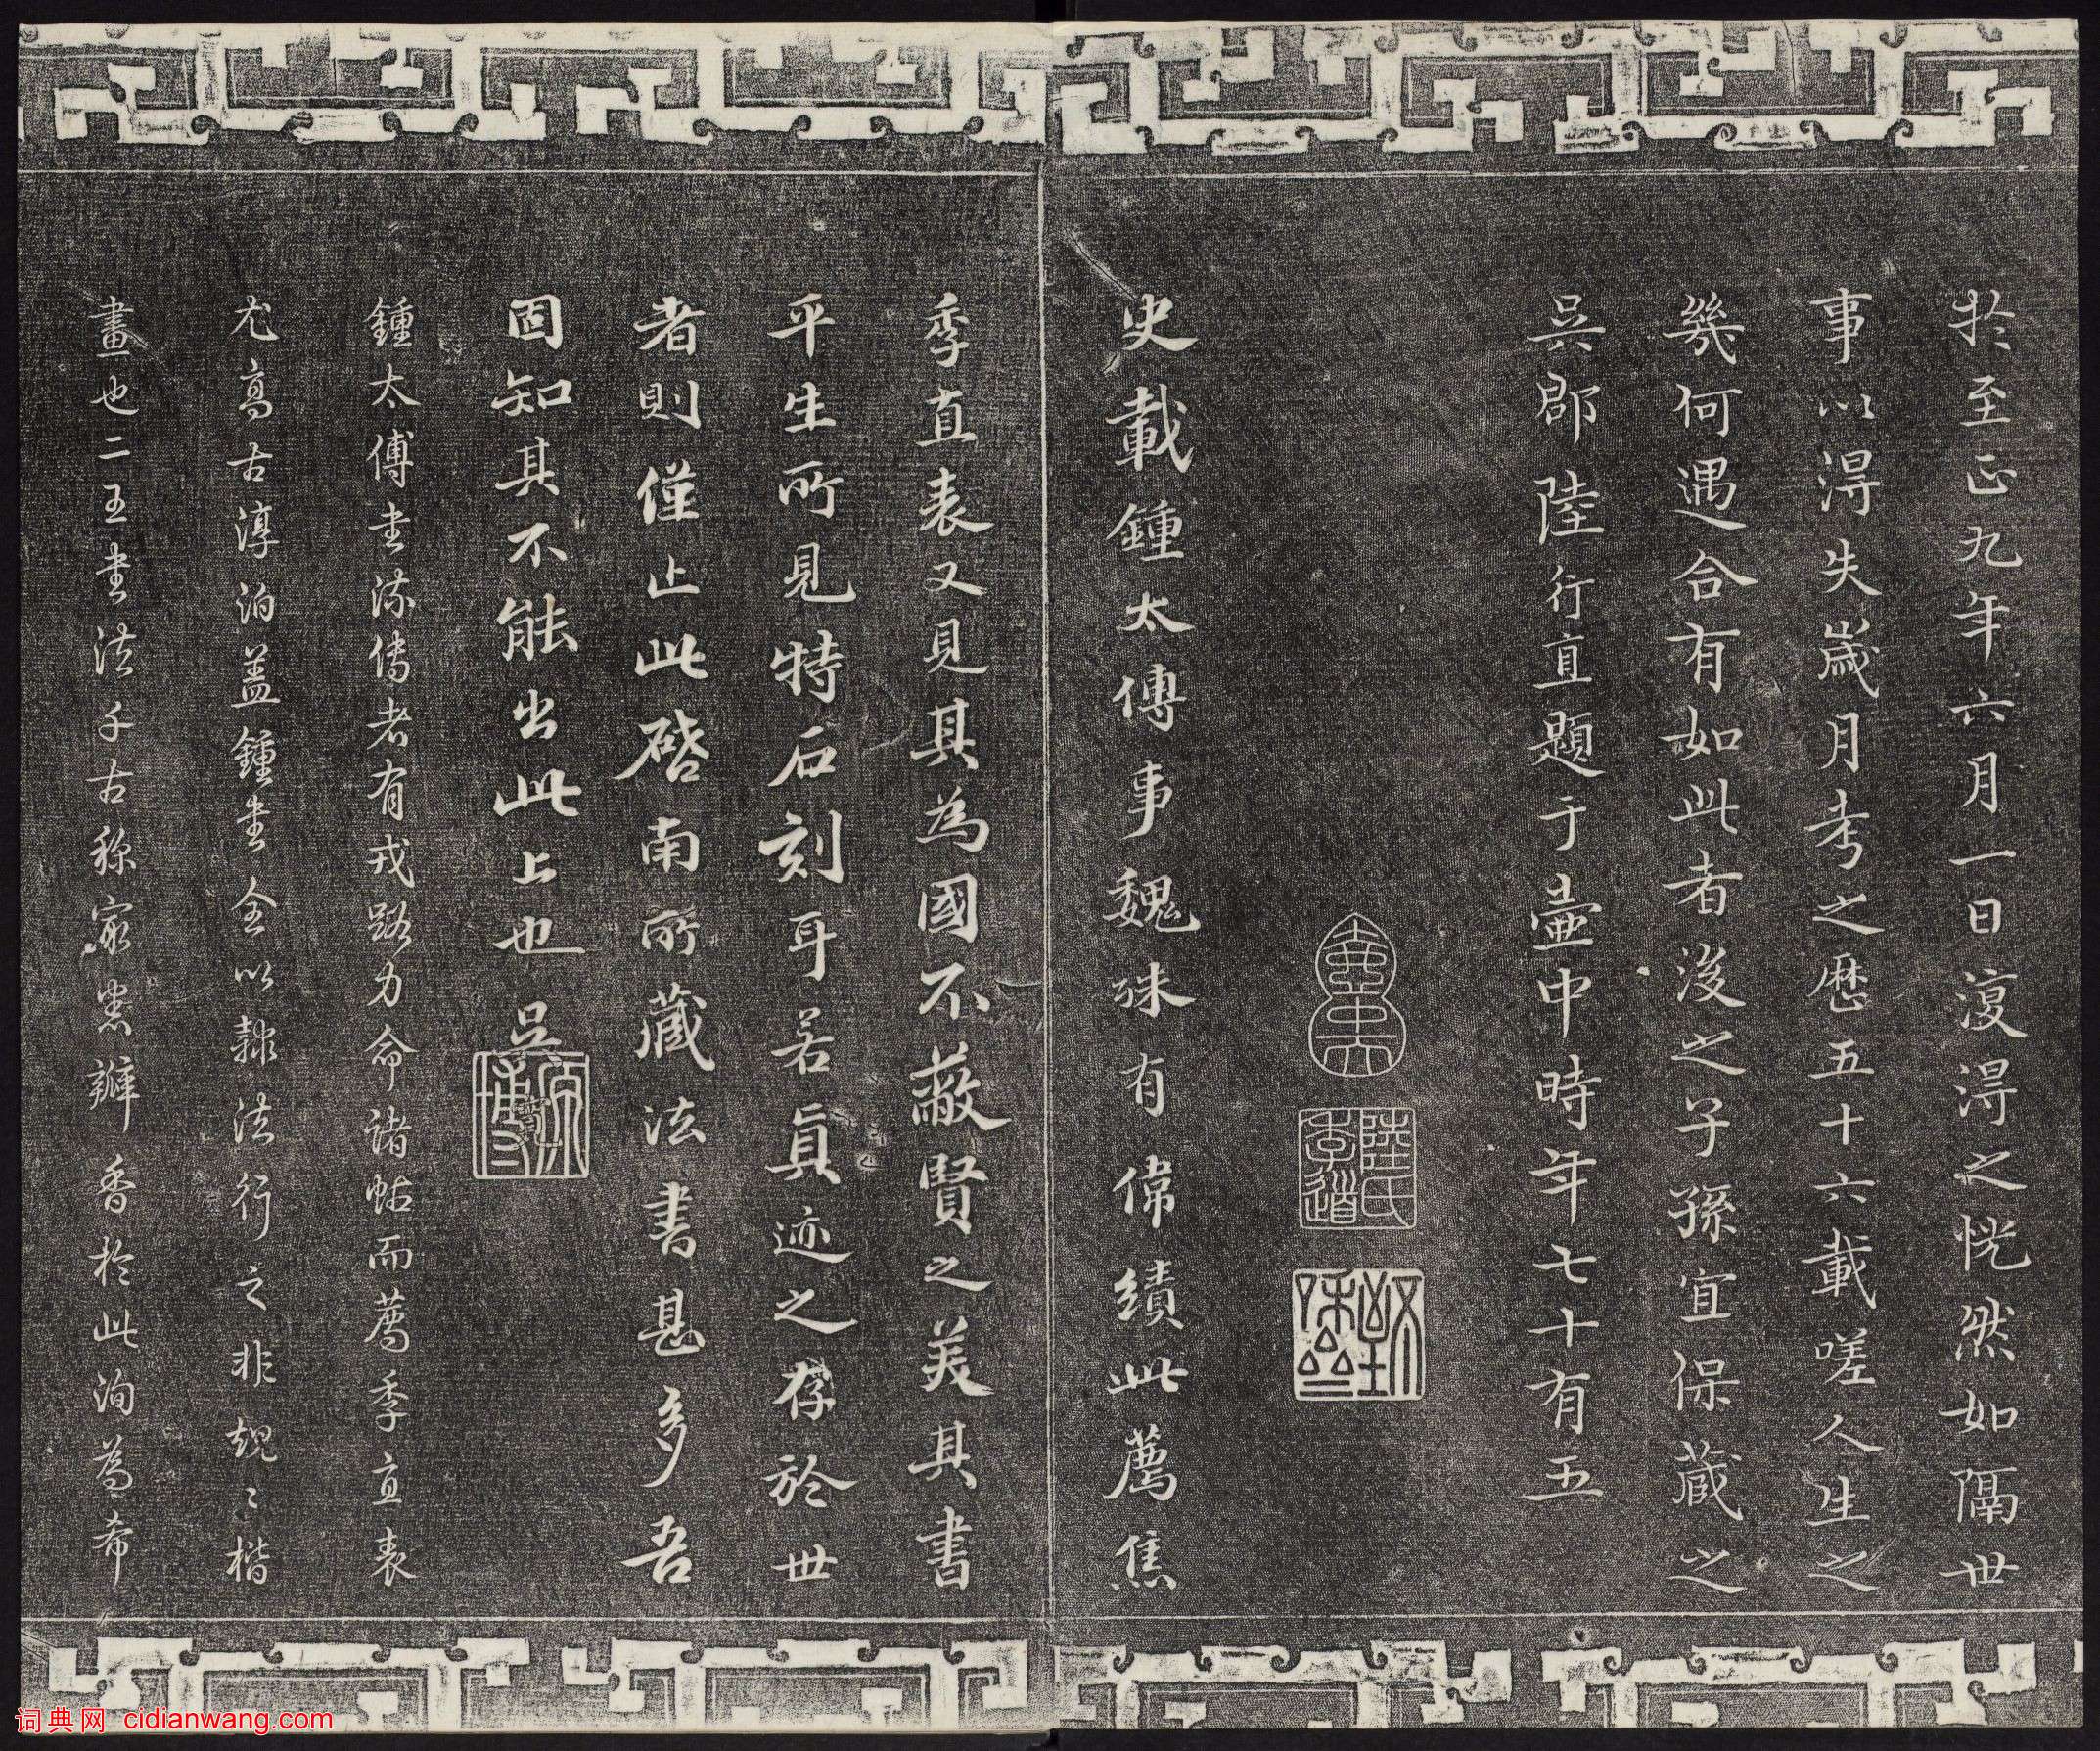 於至正九年六月一日復得之恍然如隔世
事以得失歲月考之歷五十六載嗟人生之
幾何遇合有如此者後之子孫宜保藏之
吳郡陸行直題于壺中時年七十有五
陸氏季道
史載鍾太傅事魏殊有偉績此薦焦
季直表又見其為國不蔽賢之美其書
平生所見特石刻耳若眞迹之存於世
者則僅止此啓南所藏法書甚多吾
固知其不能出此上也吳寬
原博
鍾太傅書流傳者有戎路力命諸帖而薦季直表
尤高古淳泊蓋鍾書全以隸法行之非規ミ楷
畫也二王書法千古稱家悉瓣香於此洵為希
词典网 cidianwang.com